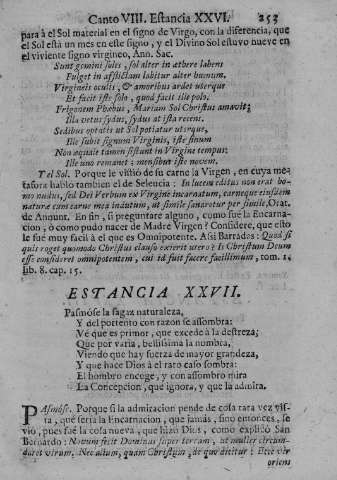 Canto VIII. Estancia XXVI. 253
para à el Sol material en el signo de Virgo, con la diferencia, que
el Sol està un mes en este signo, y el Divino Sol estuvo nueve en
el viviente signo virgineo, Ann. Sac.
Sunt gemini soles, sol alter in æthere labens
Fulget in afflictam labitur alter humum.
Virgineis oculis, & amoribus ardet uterque
Et facit iste solo, quod facit ille polo.
Trigonem Phœbus, Mariam Sol Christus amavit;
Illa vetus sydus, sydus at ista recens.
Sedibus optatis ut Sol potiatur uterque,
Ille subit signum Virginis, iste sinum
Non æquale tamen sistunt in Virgine tempus:
Ille uno remanet: mensibus iste novem.
Y el Sol. Porque le vistiò de su carne la Virgen, en cuya me-
tafora hablò tambien el de Seleucia: In lucem editus non erat ho-
mo nudus, sed Dei Verbum ex Virgine incarnatum, carneque eiusdem
naturæ cum carne mea indutum, ut simile sanaretur per simile, Orat.
de Annunt. En fin, si preguntare alguno, como fuè la Encarna-
cion, ò como pudo nacer de Madre Virgen? Considere, que esto
le fuè muy facil à el que es Omnipotente. Assi Barradas: Quod si
quis roget quomodo Christus clauso exierit utero? Is Christum Deum
esse consideret omnipotentem, cui id fuit facere facillimum, tom. 1.
lib. 8. cap. 15.
ESTANCIA XXVII.
Pasmòse la sagaz naturaleza,
Y del portento con razon se assombra:
Vè que es primor, que excede à la destreza;
Que por varia, bellissima la nombra,
Viendo que hay fuerza de mayor grandeza,
Y que hace Dios à el raro caso sombra:
El hombre encoge, y con assombro mira
La Concepcion, que ignora, y que la admira.
PAsmòse. Porque si la admiracion pende de cosa rara vez vis-
ta, què seria la Encarnacion, que jamàs, sino entonces, se
viò, pues fuè la cosa nueva, que hizo Dios, como explicò San
Bernardo: Novum fecit Dominus super terram, ut mulier circum-
daret virum. Nec alium, quam Christum, de quo dicitur: Ecce vir
oriens